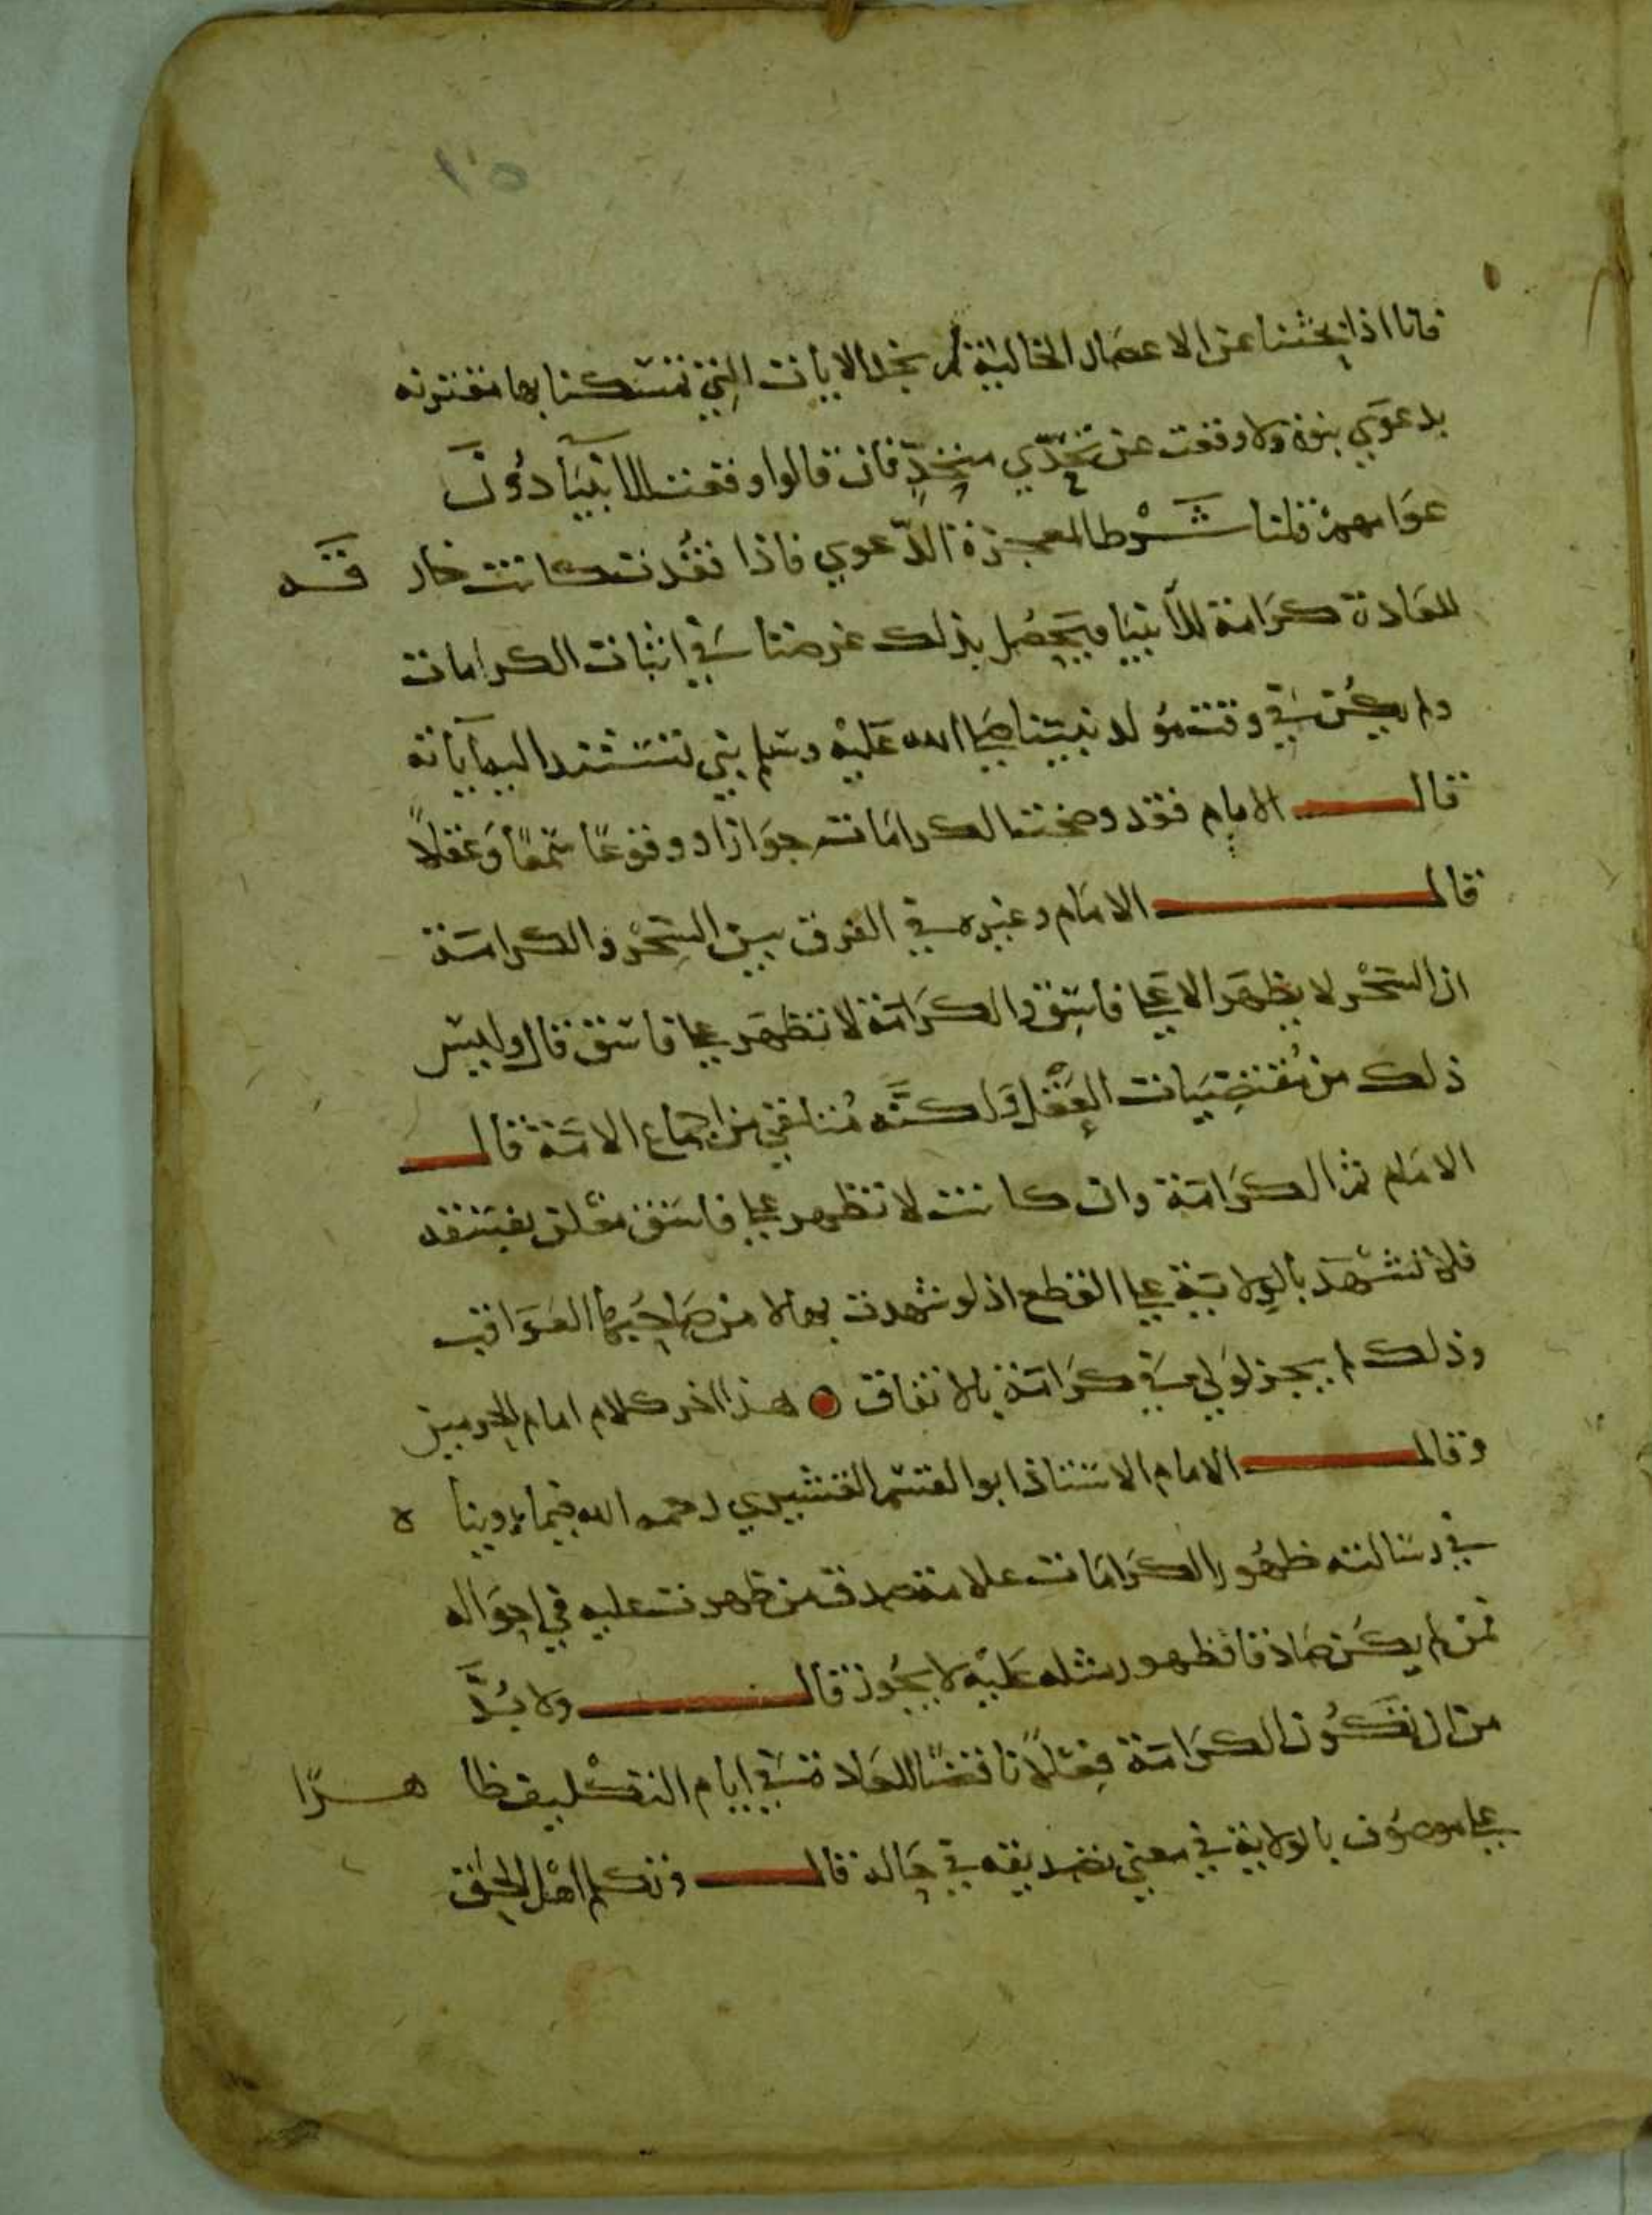 ١٥
فانا اذا بحثنا عن الاعصار الخالية لم نجد الايات التي تمسكنا بها مقترنه
بدعوي نبوة ولا وقعت عن تحدّي متحدٍّ فان قالوا وقعت للانبيآ دُونَ
عوامهمْ قلنا شَرْط المعجزة الدّعوي فاذا فقدت كانت خار قَــه
للعادة كرامة للأنبيا ويحصُل بذلك غرضنا في اثبات الكرامات
ولم يكُن في وقت مولد نبيّنا صلى الله عَليْه وسَلم نبي تستند اليه آياته
قال الامام فقد وضحت الكرامات جوَازا ووقوعًا سَمْعًا وَعَقلاً
قال الامَام وغيره في الفرق بين السِّحْر والكرامَة
ان السّحْر لا يظهَر الا عَلى فاسِق والكرَامَة لا تظهَر على فاسق قال وليس
ذلك من مُقتضِيَات العَقْل ولكنَّه مُتلقي من اجماع الامّة قال
الامَام ثم الكرَامَة وان كانت لا تظهر على فاسق مُعْلن بفسقه
فلا تشْهَد بالوِلايَة على القطع اذ لو شهدت بها لامن صَاحبُها العَوَاقب
وذلك لم يجز لوَلي في كرَامَة بالاتفاق هذا اخر كلام امام الحرمين
وقال الامام الاستاذ ابو القسم القشيري رحمه الله فيما روينا ه
في رسَالته ظهُور الكرَامَات علامة صدق من ظهرت عليه في احوَاله
فمن لم يكن صَادقا فظهور مثله عَليْه لا يجُوز قال ولا بُدَّ
من ان تكُون الكرَامَة فِعْلاً ناقضًا للعَادة في ايام التكْليف ظا هـرًا
على موصُوف بالولاية في معني تصْديقه في حَاله قال وتكلم اهْل الحق